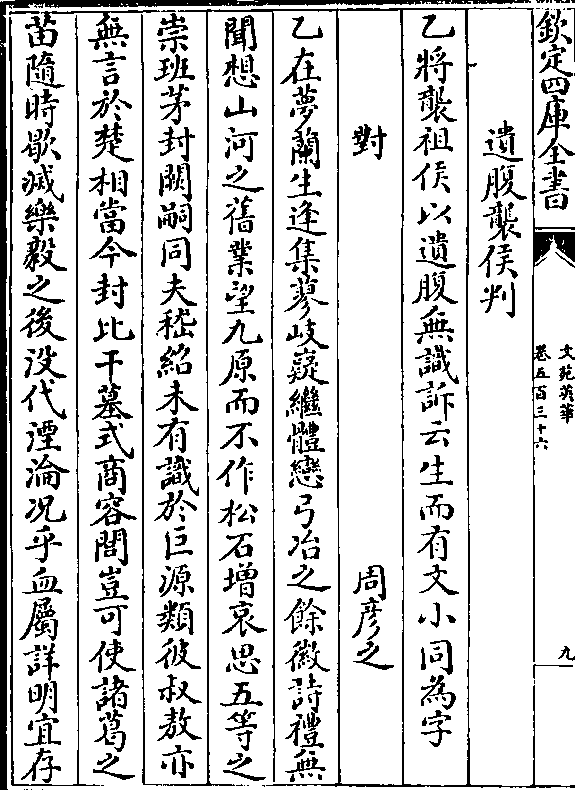 欽定四庫全書
文苑英華
卷五百三十六
九
遺腹襲侯判
乙將襲祖侯以遺腹無識訴云生而有文小同為字
對
周彦之
乙在夢蘭生逢集蓼岐嶷繼體戀弓冶之餘徽詩禮無
聞想山河之舊業望九原而不作松石増哀思五等之
崇班茅封闕嗣同夫嵇紹未有識於巨源類彼叔敖亦
無言於楚相當今封比干墓式商容閭豈可使諸葛之
苗隨時歇滅樂毅之後没代湮淪况乎血屬詳明宜存